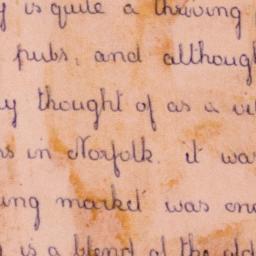 is quite a thriving
pubs, and although
thought of as a
in Norfolk. it was
market was
is a blend of the old